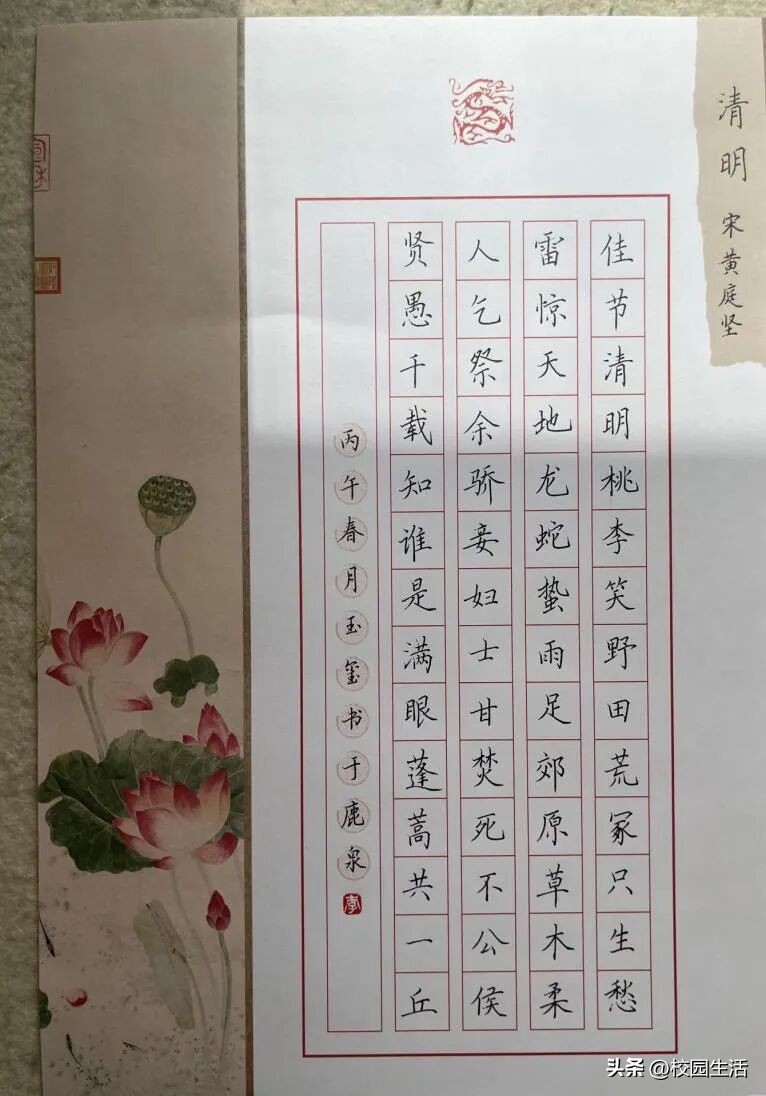 清明
宋黄庭坚
佳节清明桃李笑野田荒冢只生愁
雷惊天地龙蛇蛰雨足郊原草木柔
人乞祭余骄妾妇士甘焚死不公侯
贤愚千载知谁是满眼蓬蒿共一丘
丙午春月玉玺书于鹿泉
李
头条 @校园生活